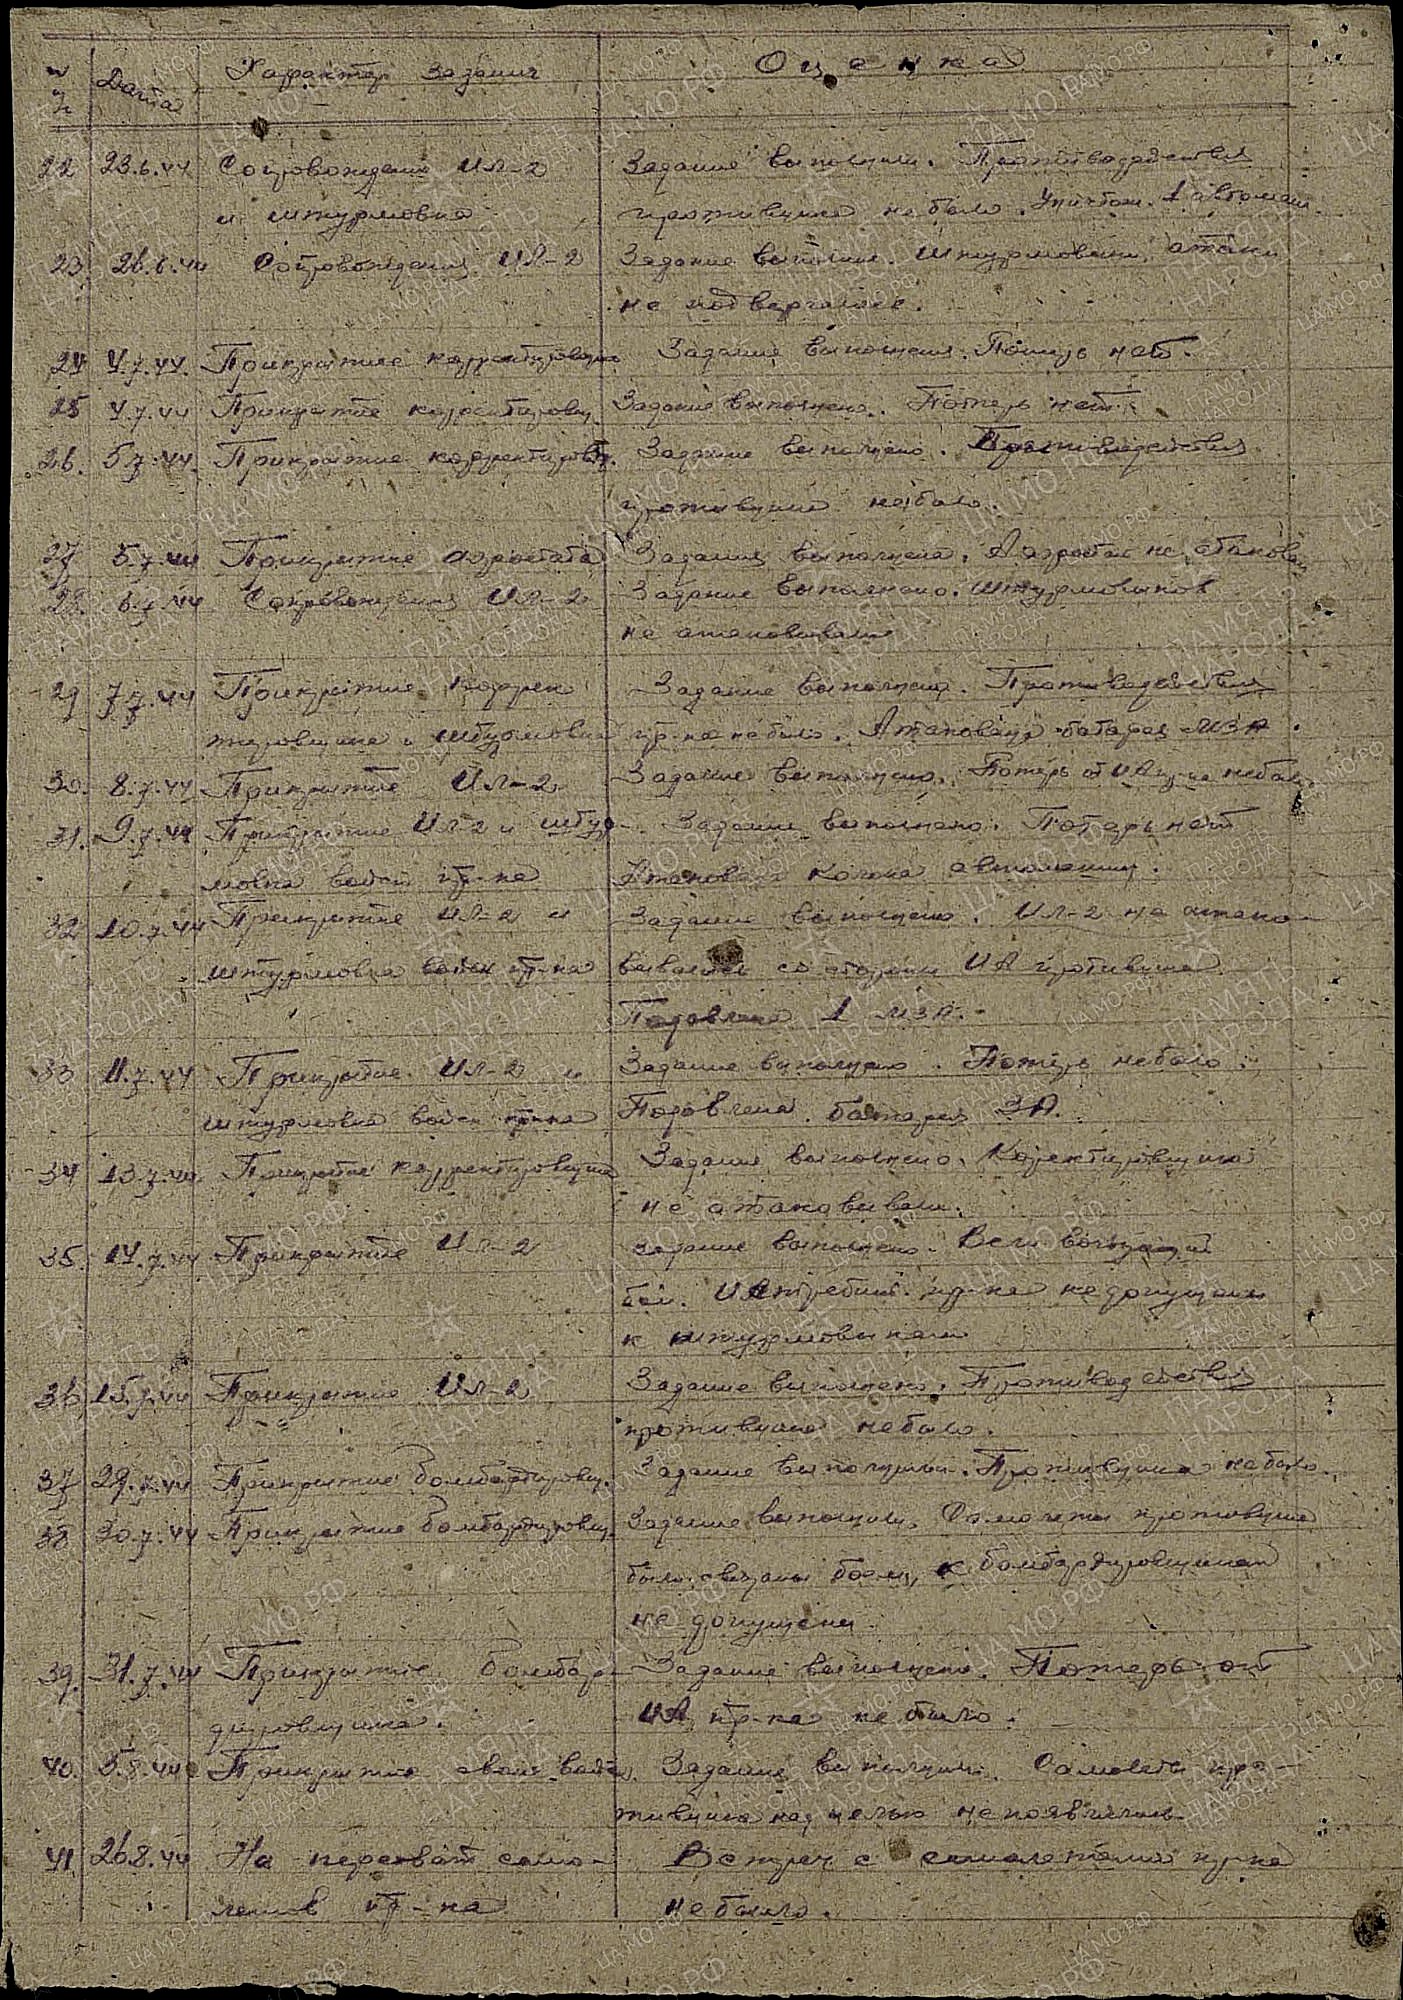 № п/п Дата Характер задания Оценка
22 23.6.44 Сопровождение Ил-2 Задание выполнил. Противодействия
и штурмовка противника не было. Уничтож. 1 автомаш.
23. 26.6.44 Сопровождение Ил-2 Задание выполнил. Штурмовики атаки
не подвергались.
24 4.7.44. Прикрытие корректировщика Задание выполнено. Потерь нет.
25 4.7.44 Прикрытие корректировщ. Задание выполнено. Потерь нет.
26. 5.7.44. Прикрытие корректировщ. Задание выполнено. Противодействия
противника не было.
27 5.7.44 Прикрытие аэростата Задание выполнено. Аэростат не атакован
28. 6.7.44 Сопровождение Ил-2 Задание выполнено. Штурмовиков
не атаковывали
29 7.7.44 Прикрытие коррек Задание выполнено. Противодействия
тировщика и штурмовка пр-ка не было. Атакована батарея МЗА.
30. 8.7.44 Прикрытие Ил-2 Задание выполнено. Потерь от ИА пр-ка не было.
31. 9.7.44 Прикрытие Ил-2 и штур- Задание выполнено. Потерь нет
мовка войск пр-ка Атакована колона автомашин.
32 10.7.44 Прикрытие Ил-2 и Задание выполнено. Ил-2 не атако-
штурмовка войск пр-ка вывались со стороны ИА противника.
Подавлена 1 МЗА.
33 11.7.44 Прикрытие Ил-2 и Задание выполнено. Потерь не было.
штурмовка войск пр-ка Подавлена батарея ЗА.
34 13.7.44 Прикрытие корректировщика Задание выполнено. Коректировщика
не атаковывали.
35. 14.7.44 Прикрытие Ил-2 Задание выполнено. Вели воздушный
бой. Истребит. пр-ка не допущены
к штурмовикам
36 15.7.44 Прикрытие Ил-2 Задание выполнено. Противодействия
противника не было.
37 29.7.44 Прикрытие бомбардировщ. Задание выполнил. Противника не было.
38 30.7.44 Прикрытие бомбардировщ. Задание выполнил. Самолеты противника
были связаны боем, к бомбардировщикам
не допущены
39. 31.7.44 Прикрытие бомбар- Задание выполнено. Потерь от
дировщика. ИА пр-ка не было.
40. 5.8.44 Прикрытие своих войск. Задание выполнил. Самолеты про-
тивника над целью не появлялись.
41 26.8.44 На перехват само- Встреч с самолетами пр-ка
летов пр-ка не было.